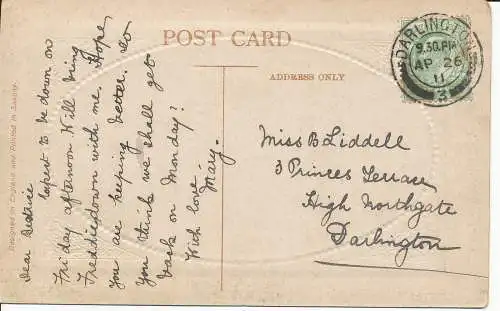 POST CARD
ADDRESS ONLY
DARLINGTON
9.30.PM
AP 26
11
3
Dear Beatrice
Expect to be down on
Friday afternoon. Will bring
Freddie down with me. Hope
you are keeping better. Do
you think we shall get
back on Monday?
With love
May.
Miss B Liddell
3 Princes Terrace
High Northgate
Darlington
Designed in England and Printed in Saxony.